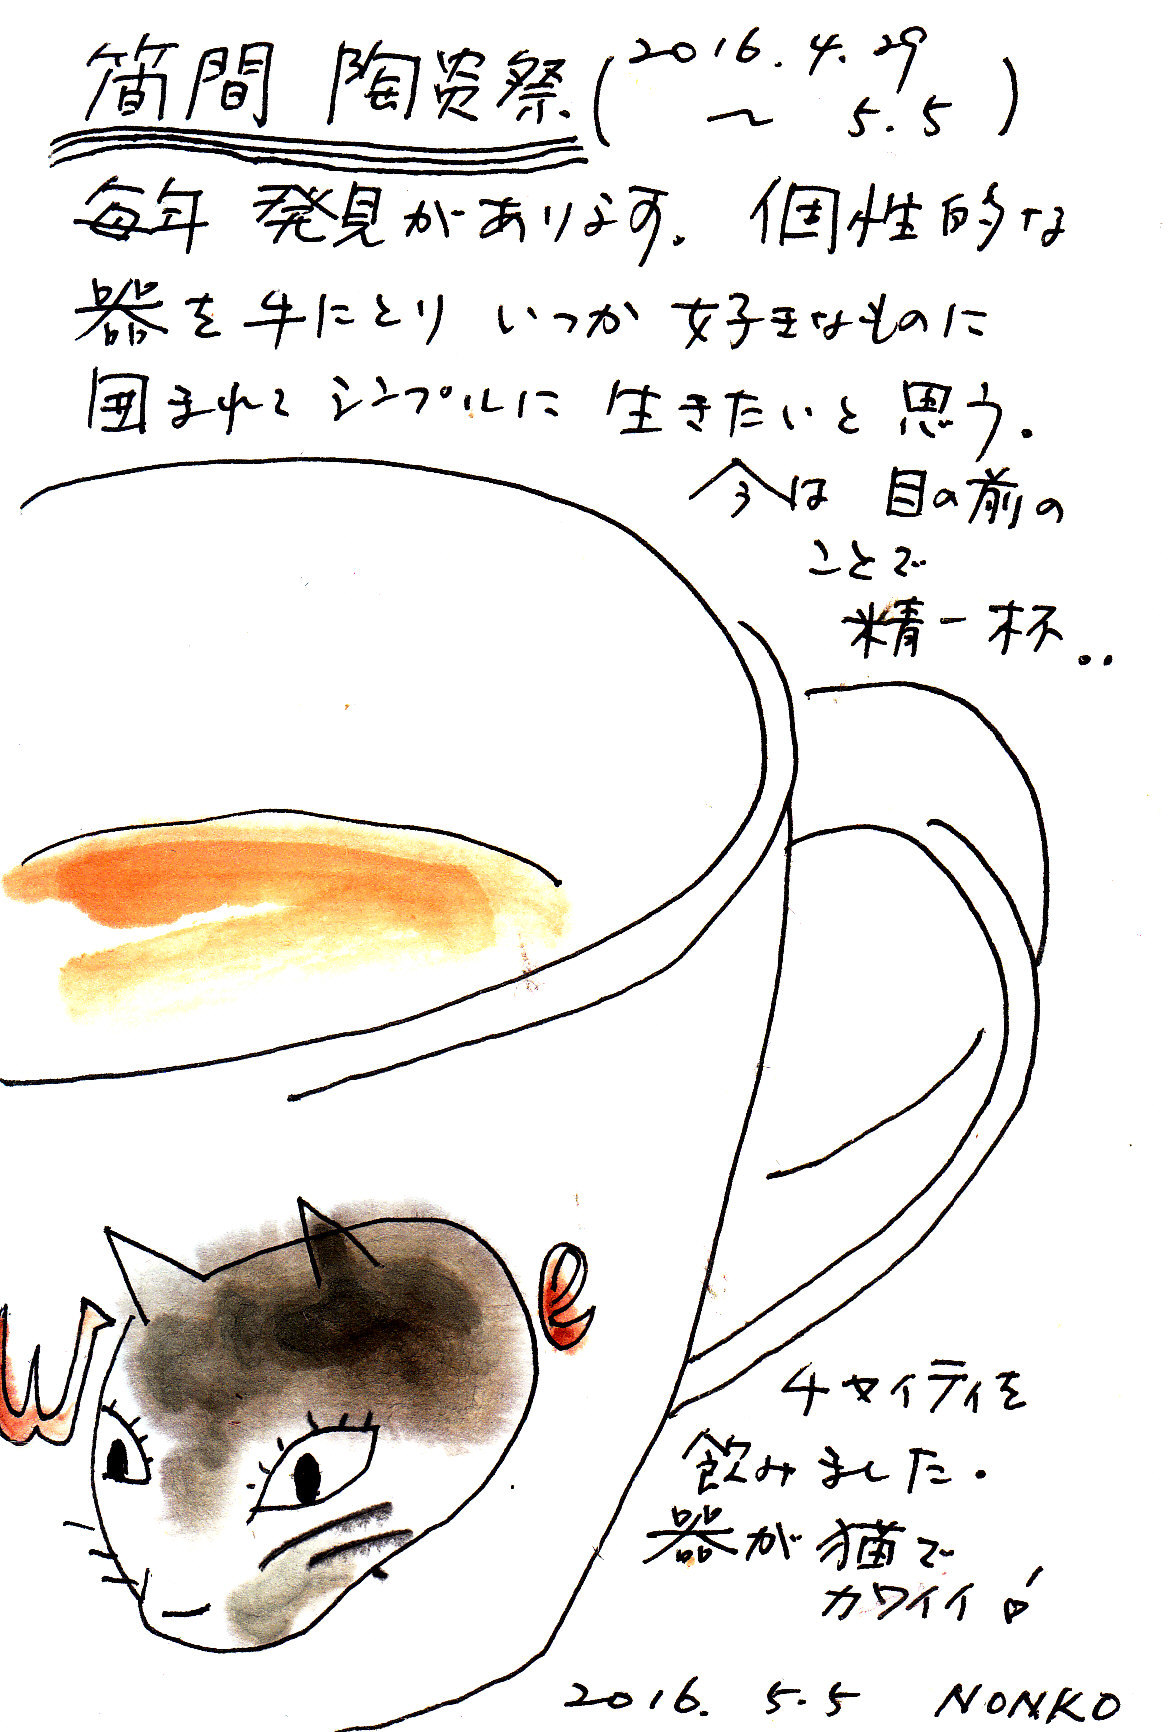 笛間 陶炎祭 (2016.4.29
～ 5.5)
毎年 発見があります。個性的な
器を手にとり いつか 好きなものに
囲まれて シンプルに 生きたいと思う。
今は 目の前の
ことで
精一杯..
チャイティを
飲みました.
器が猫で
カワイイ!
2016. 5.5 NONKO